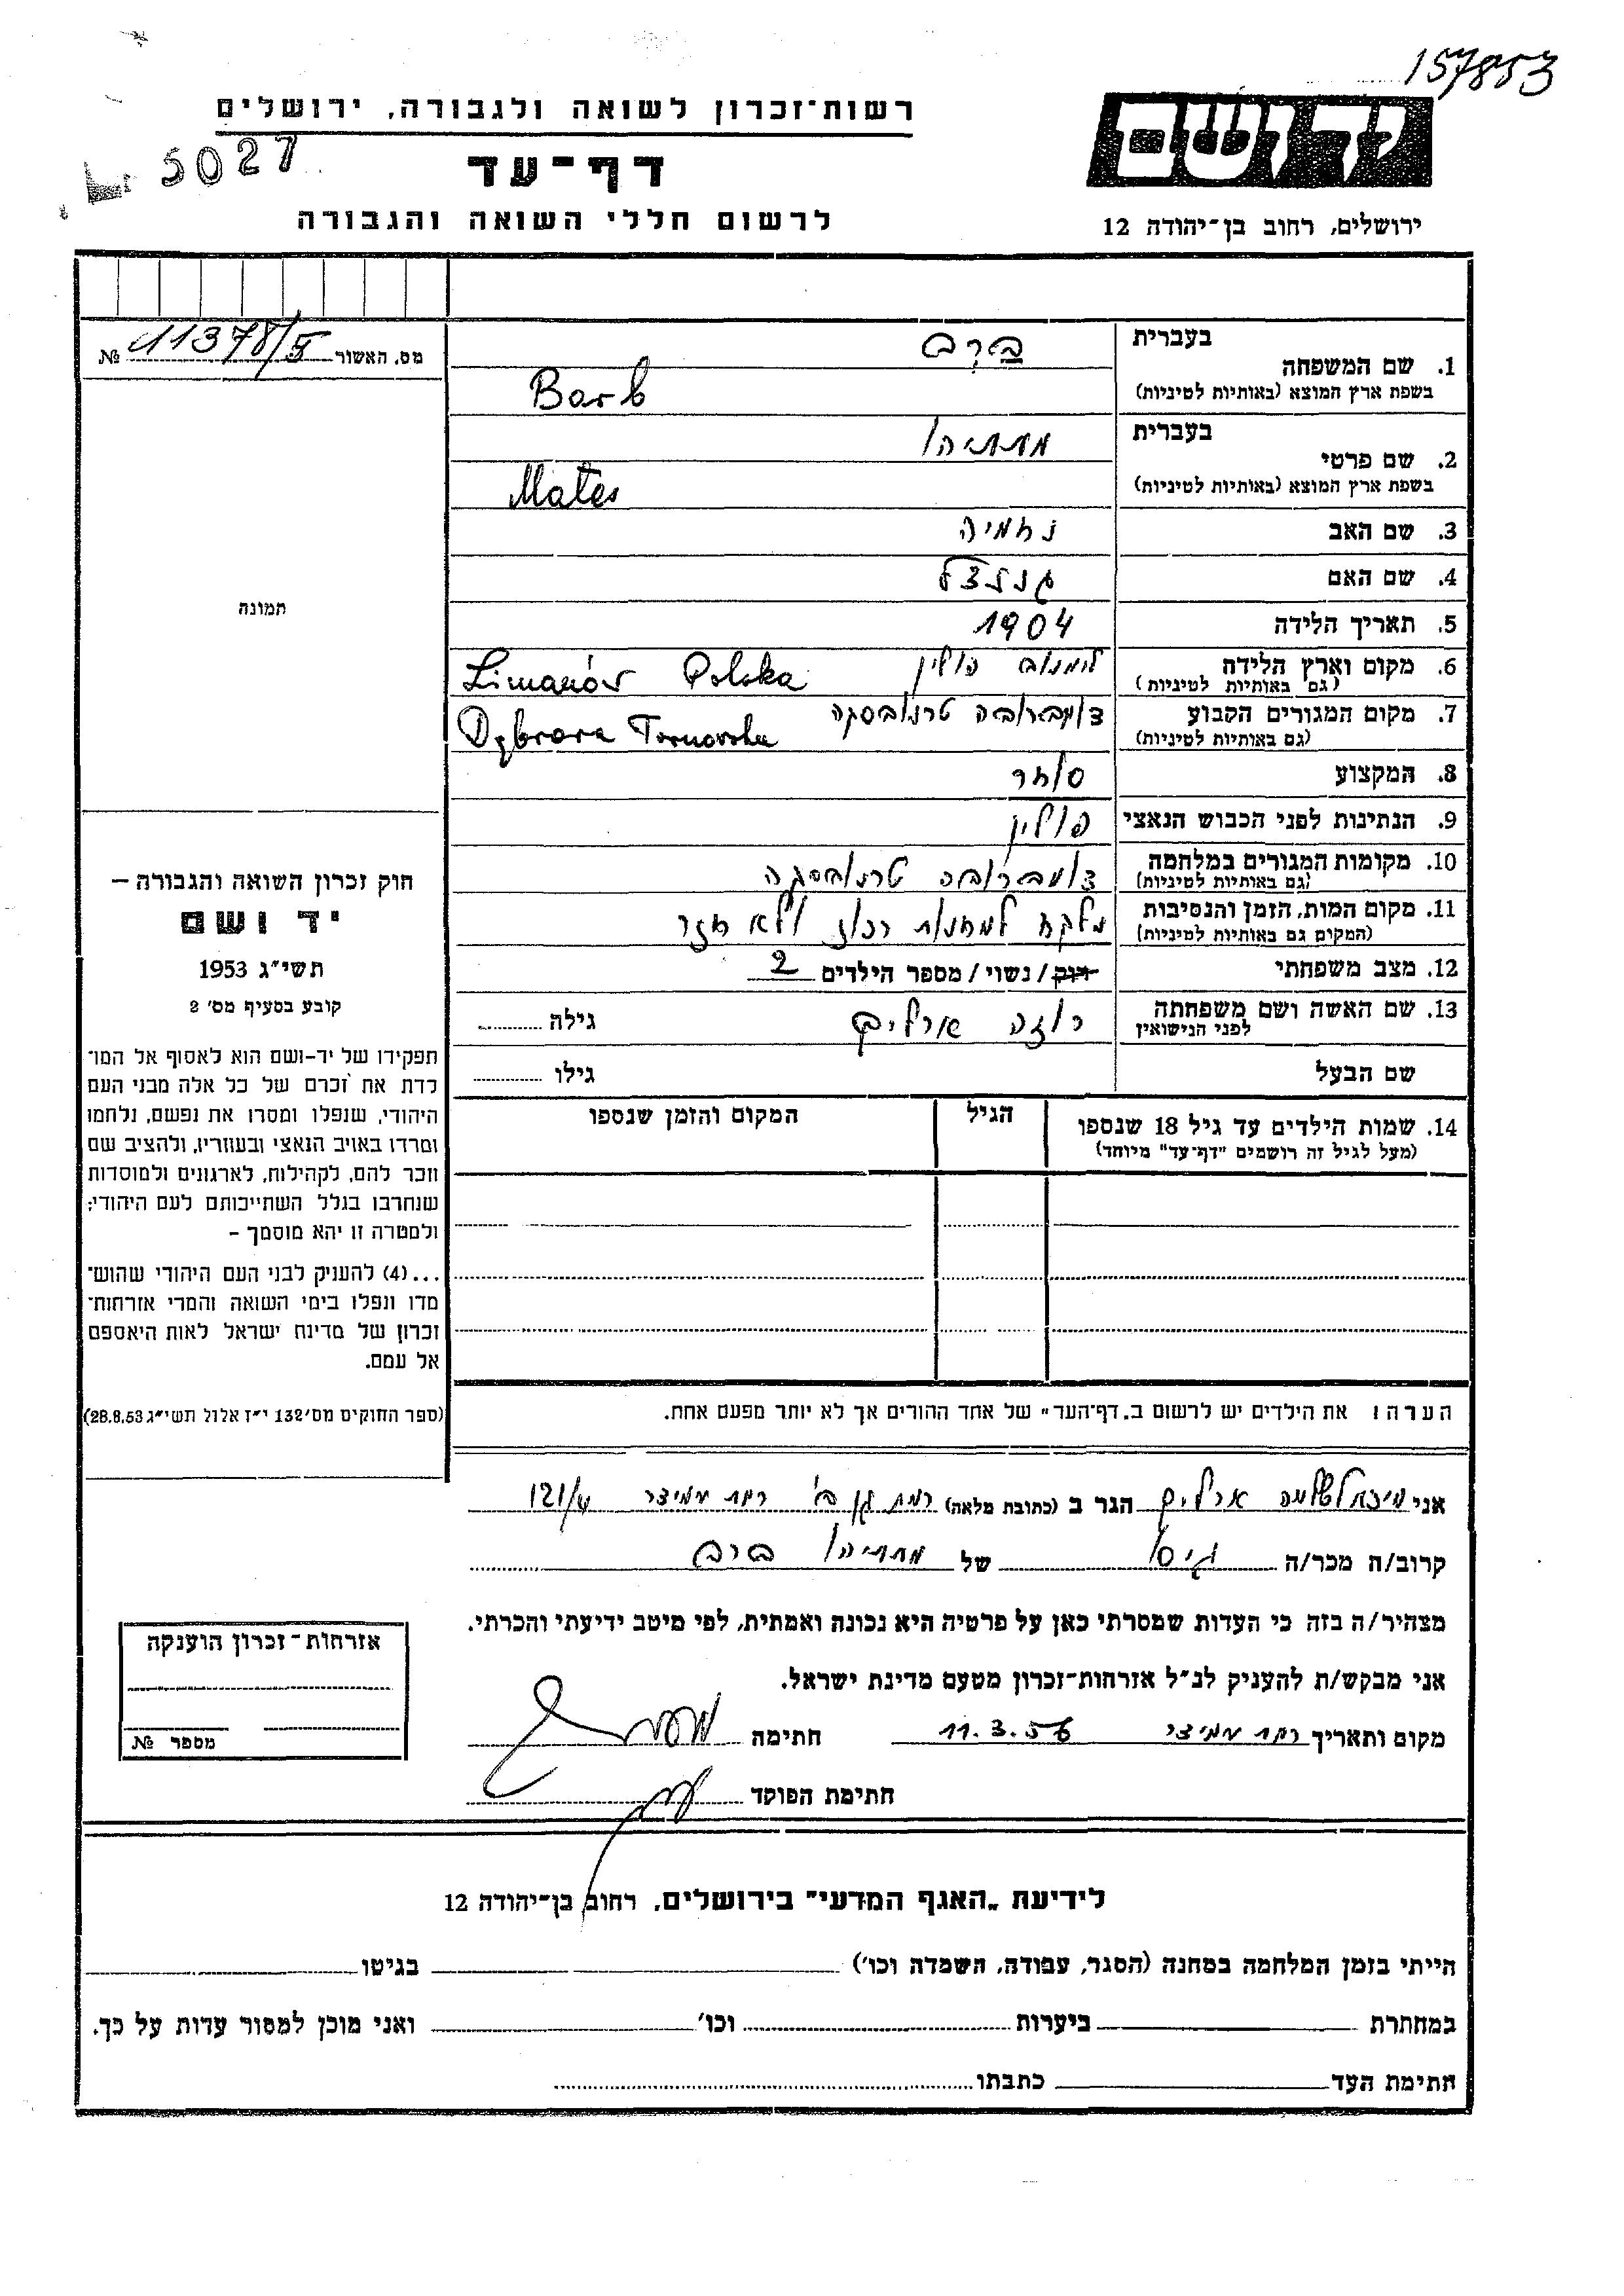 157853
רשות־זכרון לשואה ולגבורה, ירושלים
5027
דף־עד
לרשום חללי השואה והגבורה
ידושם
ירושלים, רחוב בן־יהודה 12
מס. האשור 11378/5 №
1. שם המשפחה בעברית ברב
בשפת ארץ המוצא (באותיות לטיניות) Barb
2. שם פרטי בעברית מתתיהו
בשפת ארץ המוצא (באותיות לטיניות) Mates
3. שם האב נחמיה
4. שם האם
5. תאריך הלידה 1904
6. מקום וארץ הלידה לימנוב פולין Limanów Polska
(גם באותיות לטיניות)
7. מקום המגורים הקבוע דומברובה טרנובסקה Dąbrova Tarnovska
(גם באותיות לטיניות)
8. המקצוע סוחר
9. הנתינות לפני הכבוש הנאצי פולין
10. מקומות המגורים במלחמה דומברובה טרנובסקה
(גם באותיות לטיניות)
11. מקום המות, הזמן והנסיבות נלקח למחנות רכוז ולא חזר
(המקום גם באותיות לטיניות)
12. מצב משפחתי רוק/נשוי/מספר הילדים 2
13. שם האשה ושם משפחתה רוזה ארליך גילה
לפני הנישואין
שם הבעל גילו
14. שמות הילדים עד גיל 18 שנספו הגיל המקום והזמן שנספו
(מעל לגיל זה רושמים "דף־עד" מיוחד)
הערה: את הילדים יש לרשום ב„דף־העד" של אחד ההורים אך לא יותר מפעם אחת.
תמונה
חוק זכרון השואה והגבורה –
יד ושם
תשי"ג 1953
קובע בסעיף מס' 2
תפקידו של יד-ושם הוא לאסוף אל המו־
לדת את זכרם של כל אלה מבני העם
היהודי, שנפלו ומסרו את נפשם, נלחמו
ומרדו באויב הנאצי ובעוזריו, ולהציב שם
וזכר להם, לקהילות, לארגונים ולמוסדות
שנחרבו בגלל השתייכותם לעם היהודי;
ולמטרה זו יהא מוסמך –
...(4) להעניק לבני העם היהודי שהוש־
מדו ונפלו בימי השואה והמרי אזרחות־
זכרון של מדינת ישראל לאות היאספם
אל עמם.
(ספר החוקים מס' 132 י"ז אלול תשי"ג 28.8.53)
אני ארליך הגר ב (כתובת מלאה) רמת גן ב' רמת עמידר 121/4
קרוב/ה מכר/ה גיסו של מתתיהו ברב
מצהיר/ה בזה כי העדות שמסרתי כאן על פרטיה היא נכונה ואמתית, לפי מיטב ידיעתי והכרתי.
אני מבקש/ת להעניק לנ"ל אזרחות־זכרון מטעם מדינת ישראל.
מקום ותאריך רמת עמידר 11.3.56 חתימה
חתימת הפוקד
אזרחות־זכרון הוענקה
מספר №
לידיעת „האגף המדעי" בירושלים, רחוב בן־יהודה 12
הייתי בזמן המלחמה במחנה (הסגר, עבודה, השמדה וכו') בגיטו
במחתרת ביערות וכו' ואני מוכן למסור עדות על כך.
חתימת העד כתבתו